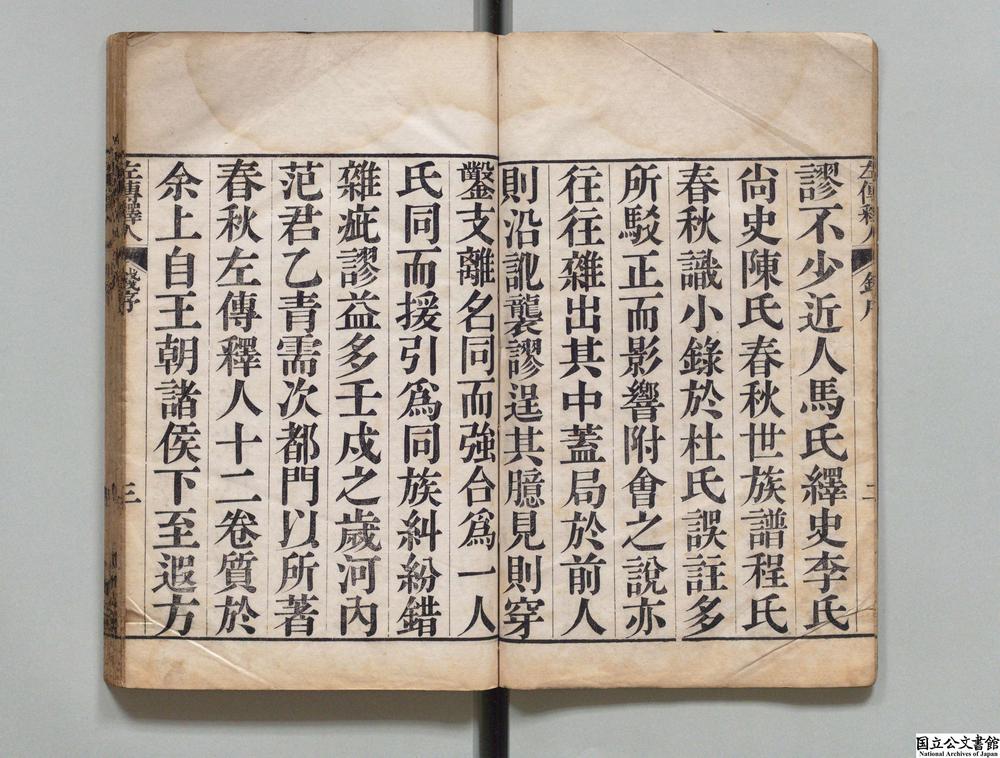 謬不少近人馬氏繹史李氏
尚史陳氏春秋世族譜程氏
春秋識小錄於杜氏誤註多
所駁正而影響附會之說亦
往往雜出其中蓋局於前人
則沿訛襲謬逞其臆見則穿
鑿支離名同而強合爲一人
氏同而援引爲同族糾紛錯
雜疵謬益多壬戍之歲河內
范君乙青需次都門以所著
春秋左傳釋人十二卷質於
余上自王朝諸侯下至遐方
左傳釋人
序
二
左傳釋人
序
三
国立公文書館
National Archives of Japan